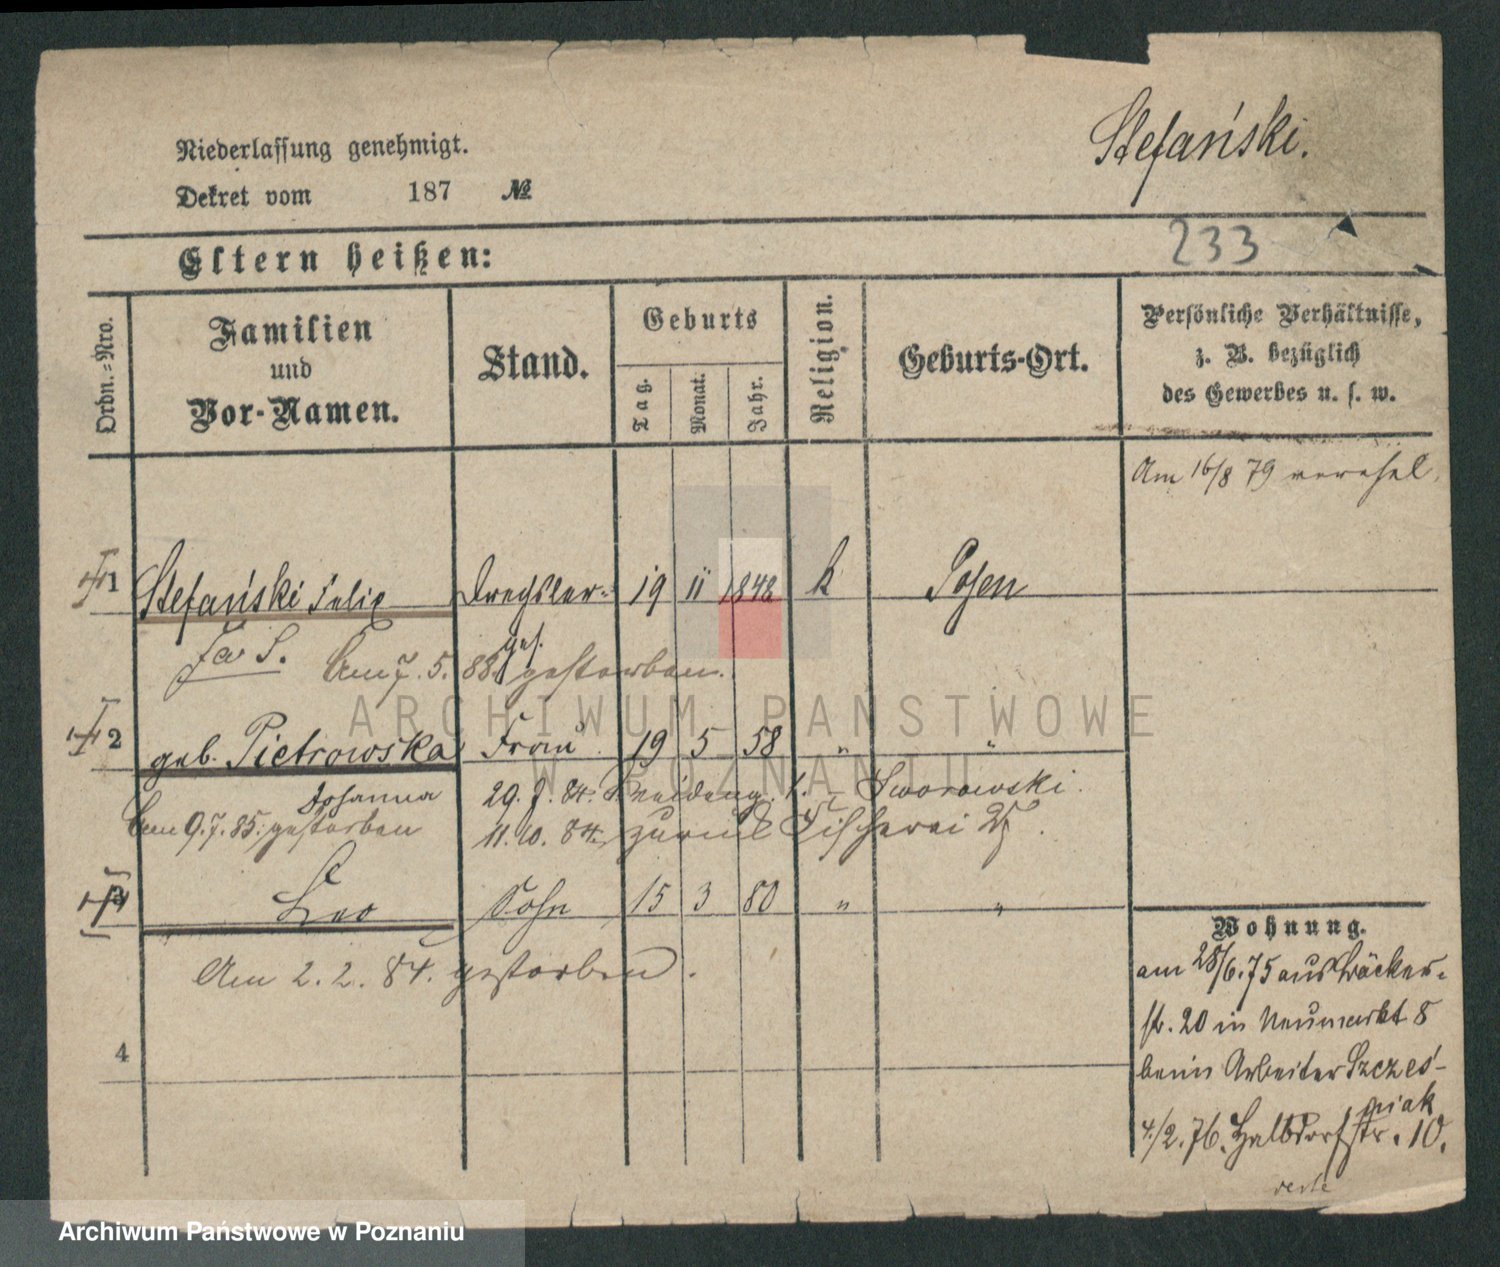 Stefański.
Niederlassung genehmigt.
Dekret vom 187 №
233
Eltern heißen:
Ordn.-Nro.
Familien
und
Vor-Namen.
Stand.
Geburts
Tag.
Monat.
Jahr.
Religion.
Geburts-Ort.
Persönliche Verhältnisse,
z. B. bezüglich
des Gewerbes u. s. w.
Am 16/8 79 verehel.
1 Stefański Felix Drechsler 19 11 1848 k Posen
Am 7. 5. 88. gestorben.
2 geb. Pietrowska Frau 19 5 58 " "
Johanna
29. 84. Sworowski.
Am 9.7.85. gestorben
11. 10. 84. zurück Fischerei 25.
3 Leo Sohn 15 3 80 " "
Am 2. 2. 84. gestorben.
4
Wohnung.
am 28/6.75 aus Bäcker-
str. 20 in Neumarkt 8
beim Arbeiter Szcześ-
niak
4/2.76. Halbdorfstr. 10.
ARCHIWUM PAŃSTWOWE
W POZNANIU
Archiwum Państwowe w Poznaniu